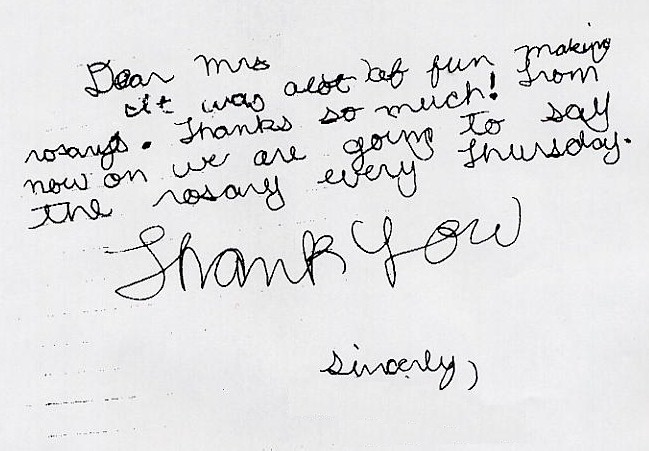 Dear Mrs
It was alot of fun making
rosarys. Thanks so much! From
now on we are going to say
the rosary every Thursday.
Thank You
Sincerly,